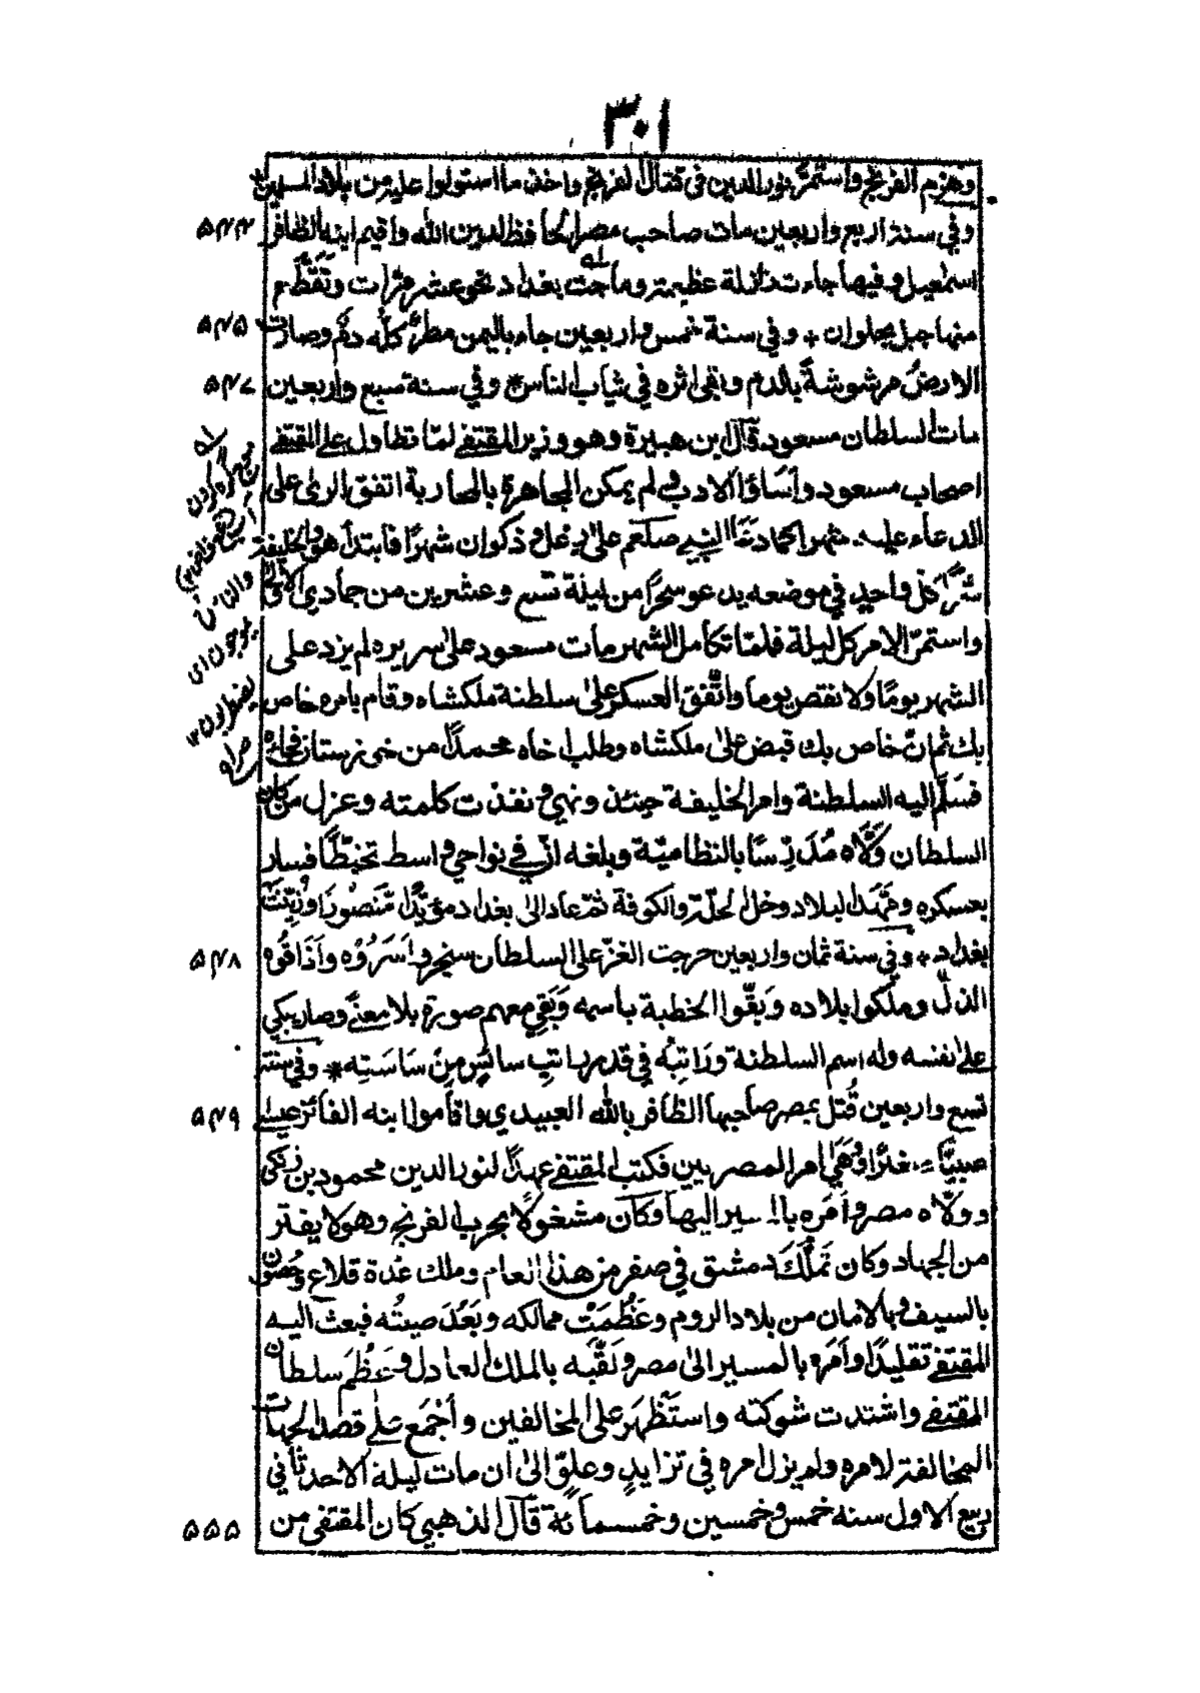 ٣٠١
وهزم الفرنج واستمرّ نور الدين فى قتال الفرنج واخذ ما استولوا عليه من بلاد المسلمين
وفي سنة اربع واربعين مات صاحب مصر الحافظ لدين الله واقيم ابنه الظافر ۵۴۴
اسمٰعيل وفيها جاءت زلزلة عظيمة وماجت بغداد نحو عشر مرّات وتَقَطَّع
منها جبل بحلوان + وفي سنة خمس واربعين جاء باليمن مطرٌ كلّه دمٌ وصارت ۵۴۵
الارضُ مرشوشةً بالدم وبقى اثره في ثياب الناس * وفي سنة سبع واربعين ۵۴۷
مات السلطان مسعود قال ابن هبيرة وهو وزير المقتفے لمّا تطاول على المقتفے
اصحاب مسعود وأساؤا الادب ولم يمكن المجاهرة بالمحاربة اتفق الرىٰ على
الدعاء عليه شهرا كما دعَا النبي صلعم علىٰ رعل وذكوان شهرًا فابتدأ هو والخليفة
سرًّا كل واحدٍ في موضعه يدعو سحرًا من ليلة تسع وعشرين من جمادي الاولى
واستمرّ الامر كل ليلة فلمّا تكامل الشهر مات مسعود علىٰ سريره لم يزد على
الشهر يومًا ولا نقص يوما واتّفق العسكر علىٰ سلطنة ملكشاه وقام بامره خاص
بك ثمّ انّ خاص بك قبض علىٰ ملكشاه وطلب اخاه محمدًا من خوزستان فجاءه
فسَلَّم اليه السلطنة وامر الخليفة حينئذ ونهي ونفذت كلمته وعزل من كان
السلطان ولَّاه مُدَرِّسًا بالنظاميّة وبلغه انّ في نواحي واسط تخبّطًا فسار
بعسكره ومَهَّد البلاد ودخل الحلّة والكوفة ثمّ عاد الىٰ بغداد مؤيّدًا مّنصُورًا وزُيِّنتْ
بغداد + وفي سنة ثمان واربعين خرجت الغزّ على السلطان سنجر واَسَرُوْه واَذَاقُوه ۵۴۸
الذلّ وملكوا بلاده وبَقّوا الخطبة باسمه وَبَقِيَ معهم صورة بلا معنًى وصار يبكي
علىٰ نفسه وله اسم السلطنة ورَاتِبُه فِي قدر راتبِ سائسٍ مِنْ سَاسَتِه * وفي سنة
تسع واربعين قُتل بمصر صاحبها الظافر بالله العبيدي واقاموا ابنه الفائز عيسے ۵۴۹
صبيًّا صغيرًا ووَهَى امر المصريين فكتب المقتفے عهدًا لنور الدين محمود بن زنكى
وولّاه مصر وأمَره بالسير اليها وكان مشغولًا بحرب الفرنج وهو لا يفتر
من الجهاد وكان تَمَلَّكَ دمشق في صفر من هذا العام وملك عُدة قلاع وحُصون
بالسيف وبالامان من بلاد الروم وعَظُمَتْ ممالكه وبَعُدَ صيتُه فبعث اليه
المقتفے تقليدًا وأمَره بالمسير الىٰ مصر ولَقَّبَه بالملك العادل وعَظُمَ سلطان
المقتفے واشتدت شوكته واستَظْهَر على المخالفين وأجْمَع علےٰ قصد الجهات
المخالفة لامره ولم يزل امره في تزايدٍ وعلوٍّ الىٰ ان مات ليلة الاحد ثاني
ربيع الاول سنة خمس وخمسين وخمسمائة قال الذهبي كان المقتفى من ۵۵۵